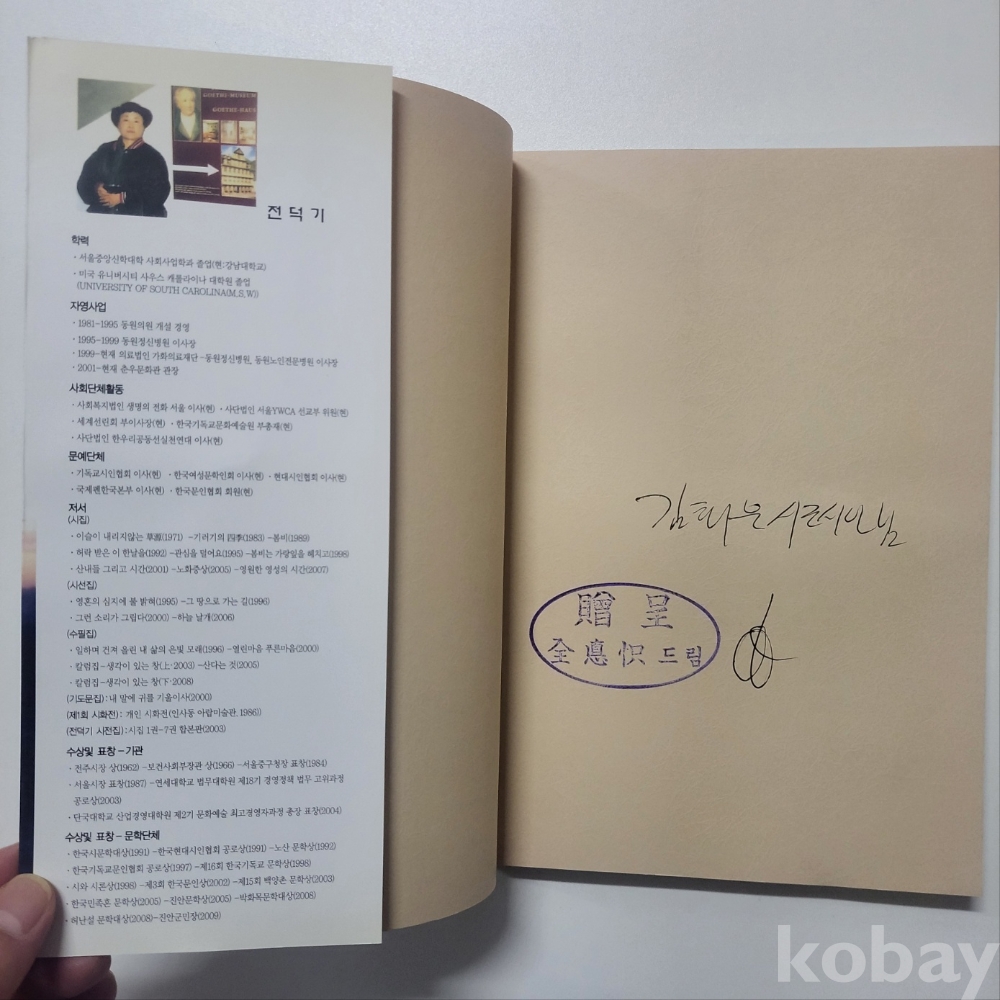 GOETHE-MUSEUM
GOETHE-HAUS
전덕기
학력
· 서울중앙신학대학 사회사업학과 졸업(현:강남대학교)
· 미국 유니버시티 사우스 캐롤라이나 대학원 졸업
(UNIVERSITY OF SOUTH CAROLINA(M,S,W))
자영사업
· 1981-1995 동원의원 개설 경영
· 1995-1999 동원정신병원 이사장
· 1999-현재 의료법인 가화의료재단-동원정신병원, 동원노인전문병원 이사장
· 2001-현재 춘우문화관 관장
사회단체활동
· 사회복지법인 생명의 전화 서울 이사(현) · 사단법인 서울YWCA 선교부 위원(현)
· 세계선린회 부이사장(현) · 한국기독교문화예술원 부총재(현)
· 사단법인 한우리공동선실천연대 이사(현)
문예단체
· 기독교시인협회 이사(현) · 한국여성문학인회 이사(현) · 현대시인협회 이사(현)
· 국제펜한국본부 이사(현) · 한국문인협회 회원(현)
저서
(시집)
· 이슬이 내리지않는 草源(1971) -기러기의 四季(1983) -봄비(1989)
· 허락 받은 이 한날을(1992) -관심을 덜어요(1995) -봄비는 가랑잎을 헤치고(1998)
· 산내들 그리고 시간(2001) -노화증상(2005) -영원한 영성의 시간(2007)
(시선집)
· 영혼의 심지에 불 밝혀(1995) -그 땅으로 가는 길(1996)
· 그런 소리가 그립다(2000) -하늘 날개(2006)
(수필집)
· 일하며 건져 올린 내 삶의 은빛 모래(1996) -열린마음 푸른마음(2000)
· 칼럼집-생각이 있는 창(上·2003) -산다는 것(2005)
· 칼럼집-생각이 있는 창(下·2008)
(기도문집) : 내 말에 귀를 기울이사(2000)
(제1회 시화전) : 개인 시화전(인사동 아랍미술관, 1986)
(전덕기 시전집) : 시집 1권-7권 합본판(2003)
수상및 표창 - 기관
· 전주시장 상(1962) -보건사회부장관 상(1966) -서울중구청장 표창(1984)
· 서울시장 표창(1987) -연세대학교 법무대학원 제18기 경영정책 법무 고위과정
공로상(2003)
· 단국대학교 산업경영대학원 제2기 문화예술 최고경영자과정 총장 표창(2004)
수상및 표창 - 문학단체
· 한국시문학대상(1991) -한국현대시인협회 공로상(1991) -노산 문학상(1992)
· 한국기독교문인협회 공로상(1997) -제16회 한국기독교 문학상(1998)
· 시와 시론상(1998) -제3회 한국문인상(2002) -제15회 백양촌 문학상(2003)
· 한국민족혼 문학상(2005) -진안문학상(2005) -박화목문학대상(2008)
· 허난설 문학대상(2008)-진안군민장(2009)
贈呈
드림
kobay